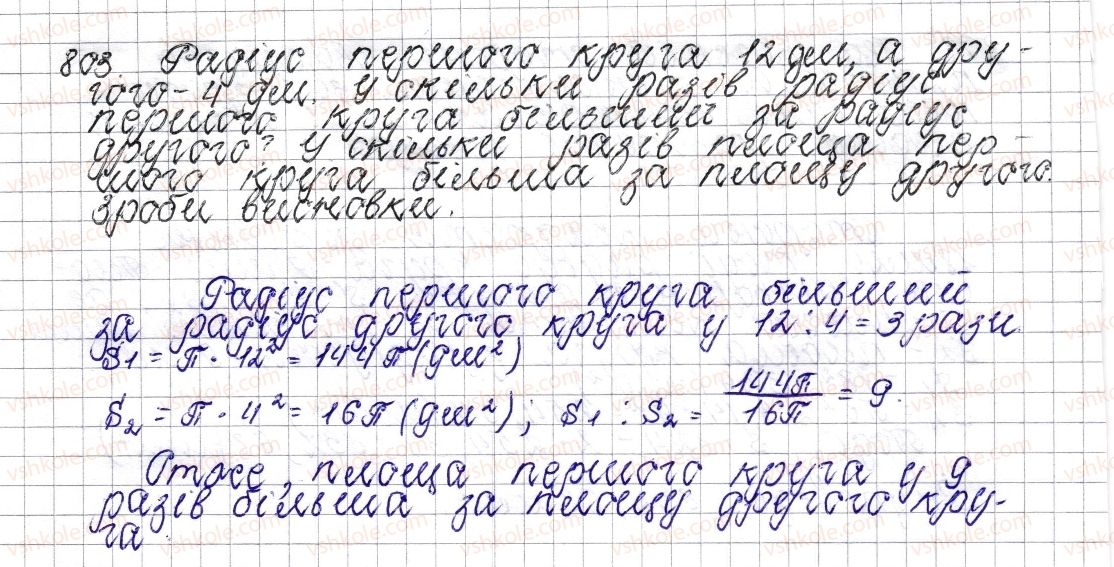 803. Радіус першого круга 12 дм, а дру-
гого - 4 дм. У скільки разів радіус
першого круга більший за радіус
другого? У скільки разів площа пер-
шого круга більша за площу другого.
Зроби висновки.
Радіус першого круга більший
за радіус другого круга у 12 : 4 = 3 рази
S1 = π · 12² = 144π (дм²)
S2 = π · 4² = 16π (дм²); S1 : S2 = 144π/16π = 9.
Отже, площа першого круга у 9
разів більша за площу другого кру-
га